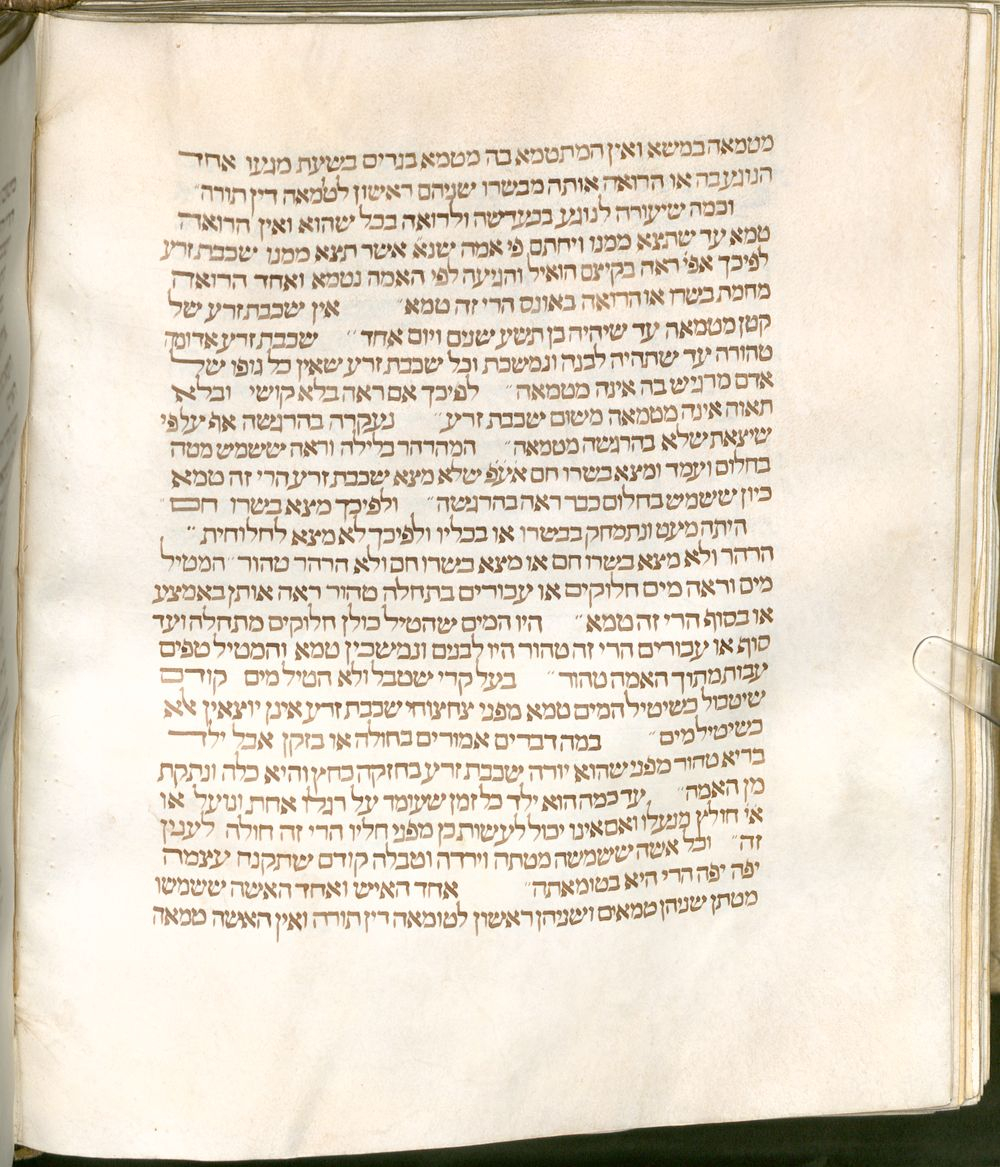 מטמאה במשא ואין המתטמא בה מטמא בגדים בשעת מגעו אחד
הנוגע בה או הרואה אותה מבשרו שניהם ראשון לטמאה דין תורה״
וכמה שיעורה לנוגע בכעדשה ולרואה בכל שהוא ואין הרואה
טמא עד שתצא ממנו ויחתם פי אמה שנא׳ אשר תצא ממנו שכבת זרע
לפיכך אפי׳ ראה בקיצם הואיל והגיעה לפי האמה נטמא ואחד הרואה
מחמת בשרו או הרואה באונס הרי זה טמא״ אין שכבת זרע של
קטן מטמאה עד שיהיה בן תשע שנים ויום אחד״ שכבת זרע אדומה
טהורה עד שתהיה לבנה ונמשכת וכל שכבת זרע שאין כל גופו של
אדם מרגיש בה אינה מטמאה״ לפיכך אם ראה בלא קושי ובלא
תאוה אינה מטמאה משום שכבת זרע״ נעקרה בהרגשה אף על פי
שיצאת שלא בהרגשה מטמאה״ המהרהר בלילה וראה ששמש מטה
בחלום ועמד ומצא בשרו חם אע״פ שלא מצא שכבת זרע הרי זה טמא
כיון ששמש בחלום כבר ראה בהרגשה״ ולפיכך מצא בשרו חם״
היתה מעט ונתמחק בבשרו או בכליו ולפיכך לא מצא לחלוחית״
הרהר ולא מצא בשרו חם או מצא בשרו חם ולא הרהר טהור״ המטיל
מים וראה מים חלוקים או עכורים בתחלה טהור ראה אותן באמצע
או בסוף הרי זה טמא״ היו המים שהטיל כולן חלוקים מתחלה ועד
סוף או עכורים הרי זה טהור היו לבנים ונמשכין טמא והמטיל טפים
עבות מתוך האמה טהור״ בעל קרי שטבל ולא הטיל מים קודם
שיטבול כשיטיל המים טמא מפני צחצוחי שכבת זרע אינן יוצאין אלא
כשיטיל מים״ במה דברים אמורים בחולה או בזקן אבל ילד
בריא טהור מפני שהוא יורה שכבת זרע בחזקה כחץ והיא כלה ונתקת
מן האמה״ עד כמה הוא ילד כל זמן שעומד על רגלו אחת ונועל או
חולץ מנעלו ואם אינו יכול לעשות כן מפני חליו הרי זה חולה לענין
זה״ וכל אשה ששמשה מטתה וירדה וטבלה קודם שתקנח עצמה
יפה יפה הרי היא בטומאתה״ אחד האיש ואחד האשה ששמשו
מטתן שניהן טמאים ושניהן ראשון לטומאה דין תורה ואין האשה טמאה